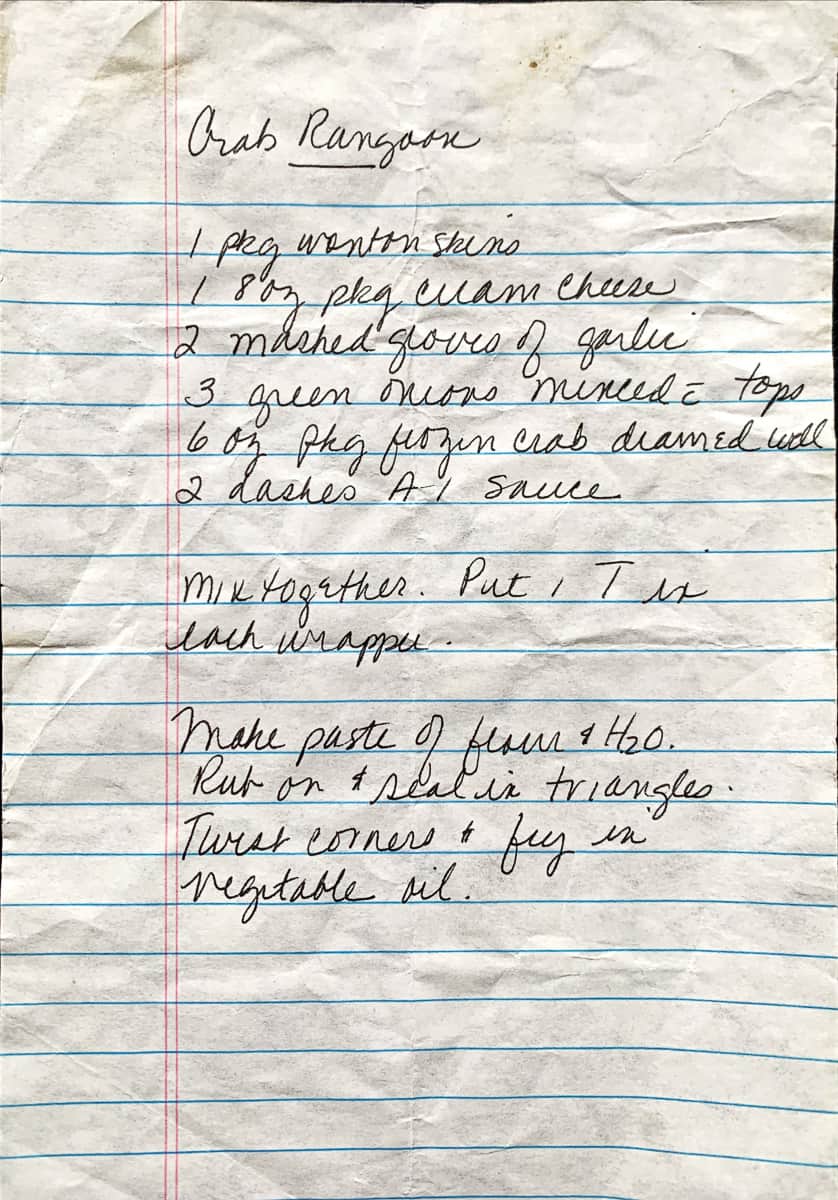 Crab Rangoon
1 pkg wonton skins
1 8 oz pkg cream cheese
2 mashed gloves of garlic
3 green onions minced c̄ tops
6 oz pkg frozen crab drained well
2 dashes A1 Sauce
Mix together. Put 1 T in
each wrapper.
Make paste of flour & H2O.
Rub on & seal in triangles.
Twist corners & fry in
vegetable oil.